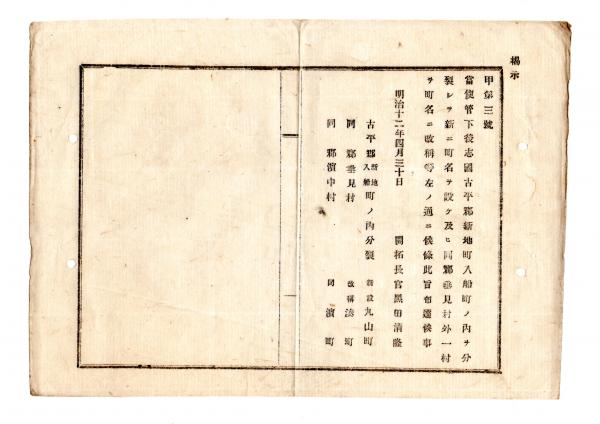 揭示
甲第三號
當使管下後志國古平郡新地町入船町ノ內ヲ分
裂シテ新ニ町名ヲ設ケ及ヒ同郡垂見村外一村
ヲ町名ニ改稱等左ノ通ニ候條此旨布達候事
明治十二年四月三十日 開拓長官黑田淸隆
古平郡新地入船町ノ內分裂 新設丸山町
同郡垂見村 改稱湊町
同郡濱中村 同濱町